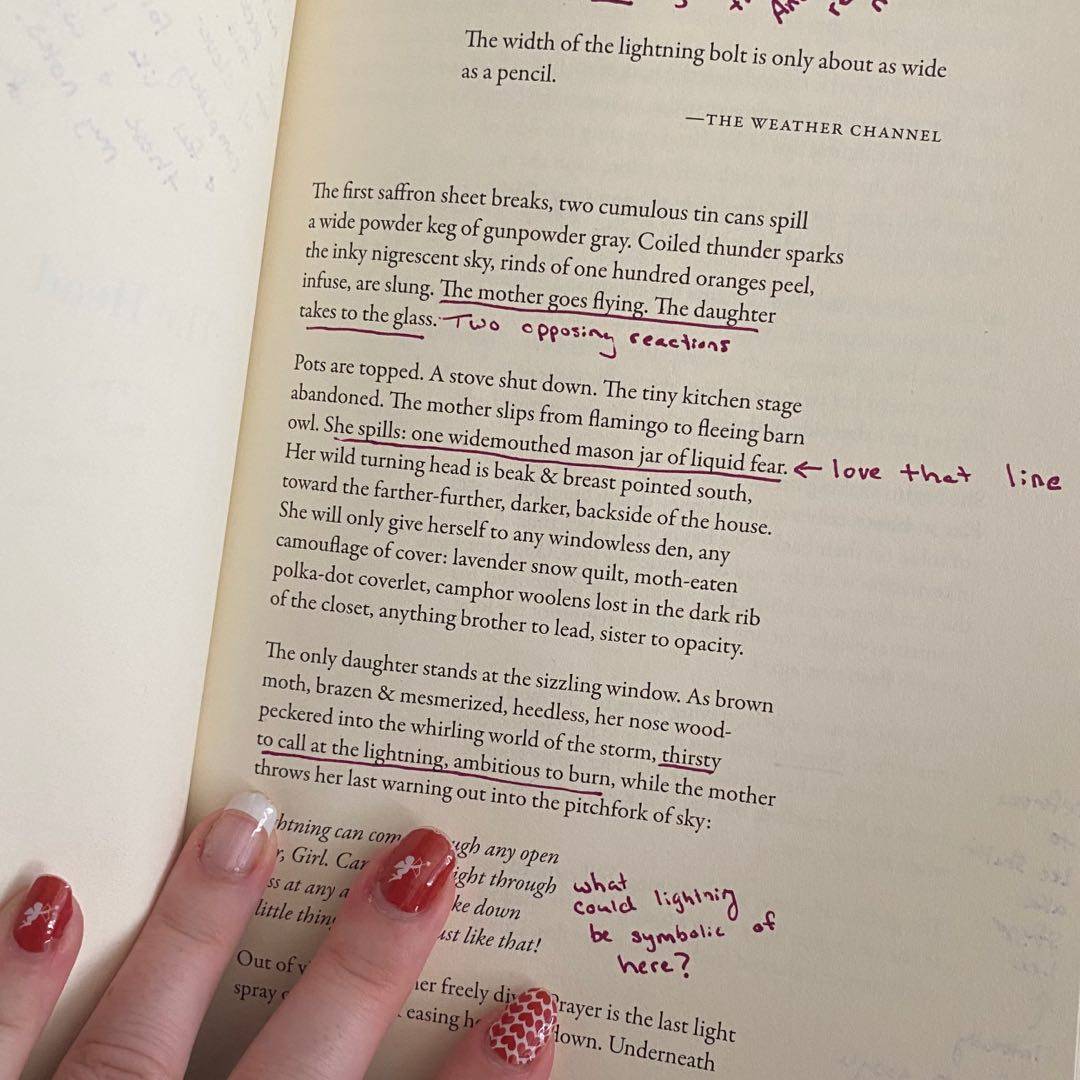 The width of the lightning bolt is only about as wide
as a pencil.
—THE WEATHER CHANNEL
The first saffron sheet breaks, two cumulous tin cans spill
a wide powder keg of gunpowder gray. Coiled thunder sparks
the inky nigrescent sky, rinds of one hundred oranges peel,
infuse, are slung. The mother goes flying. The daughter
takes to the glass. Two opposing reactions
Pots are topped. A stove shut down. The tiny kitchen stage
abandoned. The mother slips from flamingo to fleeing barn
owl. She spills: one widemouthed mason jar of liquid fear. ← love that line
Her wild turning head is beak & breast pointed south,
toward the farther-further, darker, backside of the house.
She will only give herself to any windowless den, any
camouflage of cover: lavender snow quilt, moth-eaten
polka-dot coverlet, camphor woolens lost in the dark rib
of the closet, anything brother to lead, sister to opacity.
The only daughter stands at the sizzling window. As brown
moth, brazen & mesmerized, heedless, her nose wood-
peckered into the whirling world of the storm, thirsty
to call at the lightning, ambitious to burn, while the mother
throws her last warning out into the pitchfork of sky:
can any open
Girl. through
at any down
little just like that!
what
could lightning
be symbolic of
here?
Out of freely prayer is the last light
spray easing down. Underneath